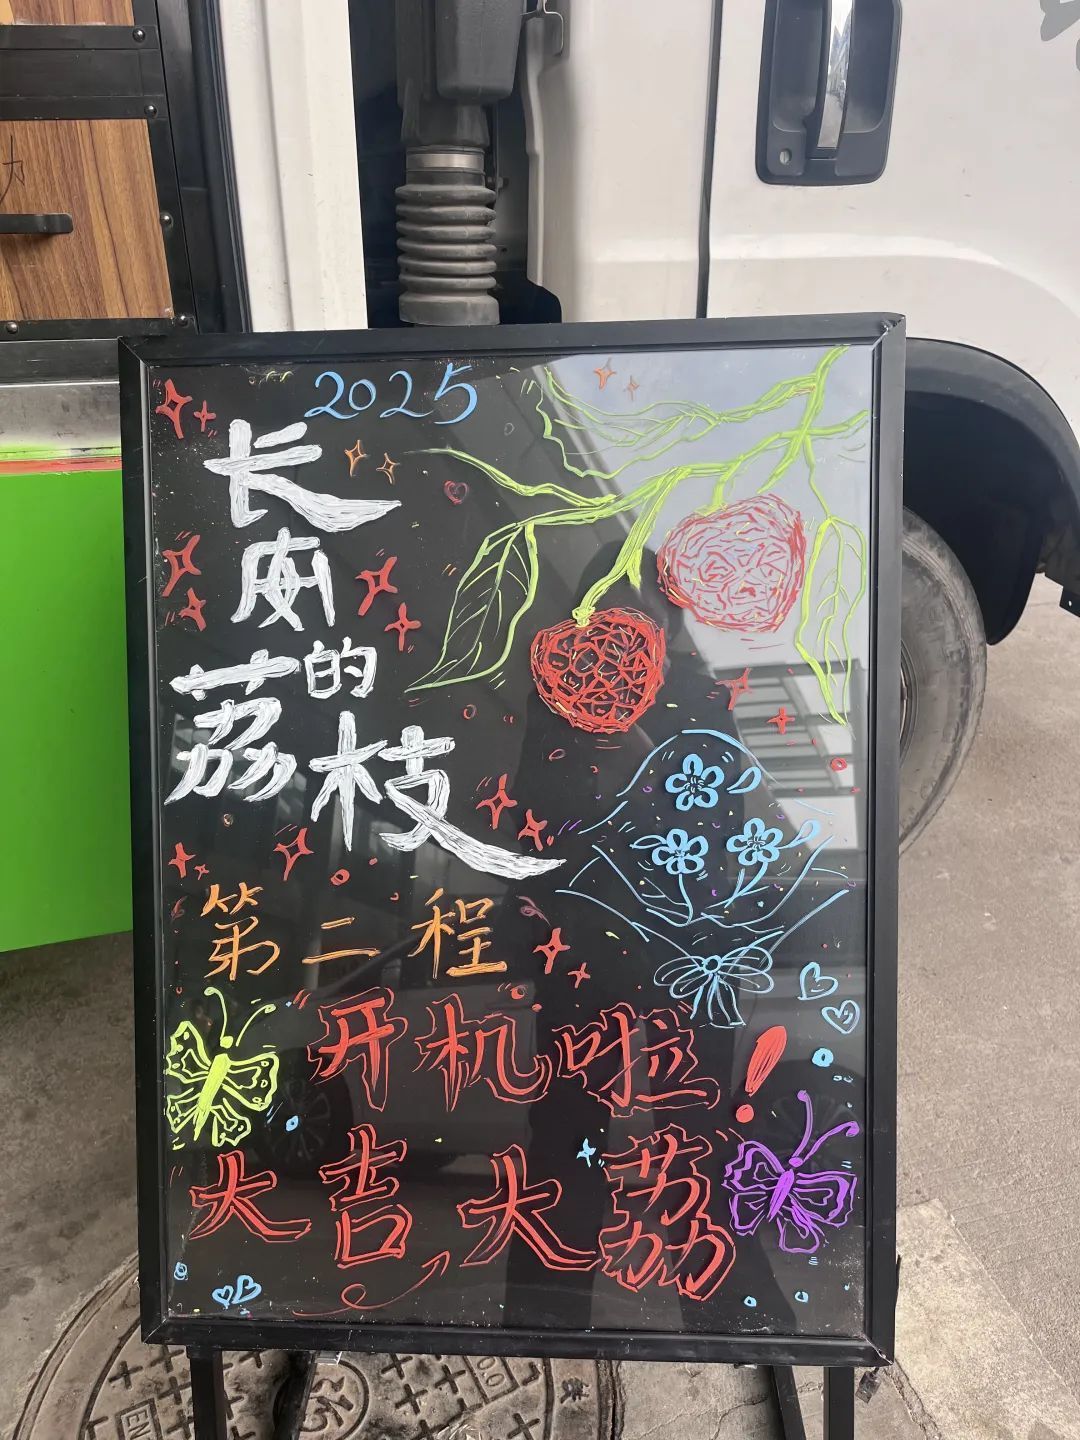 2025
长安
的
荔枝
第二程
开机啦！
大吉大荔